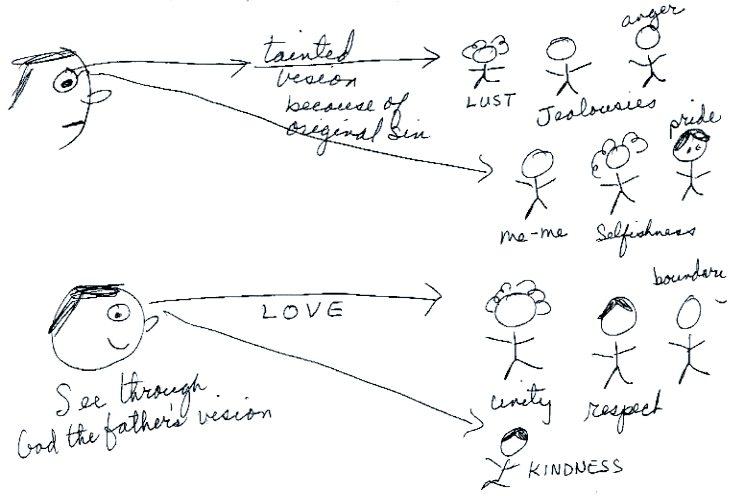 tainted
vision
because of
original Sin
LUST
Jealousies
anger
me-me
Selfishness
pride
LOVE
See through
God the father's vision
unity
respect
boundari
KINDNESS